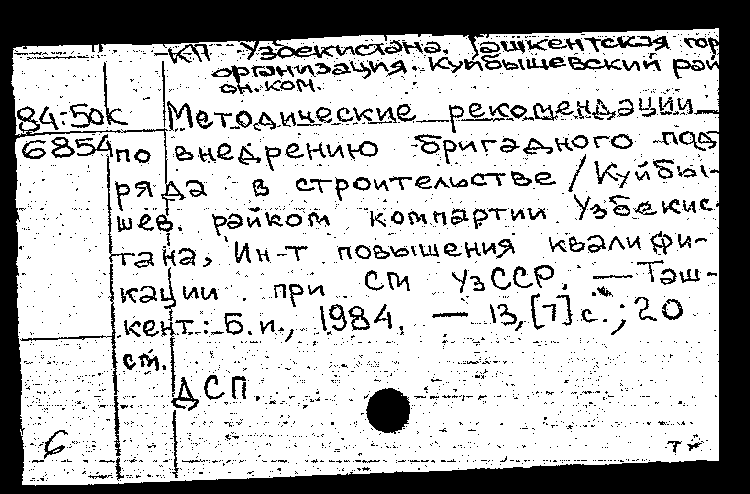 КП Узбекистана. Ташкентская гор
организация. Куйбышевский рай
он. ком.
84:50К Методические рекомендации
6854 по внедрению бригадного под
ряда в строительстве / Куйбы-
шев. райком компартии Узбекис-
тана, Ин-т повышения квалифи-
кации при СМ УзССР. — Таш-
кент: Б.и., 1984. — 13, [7] с.; 20
см.
ДСП.
6